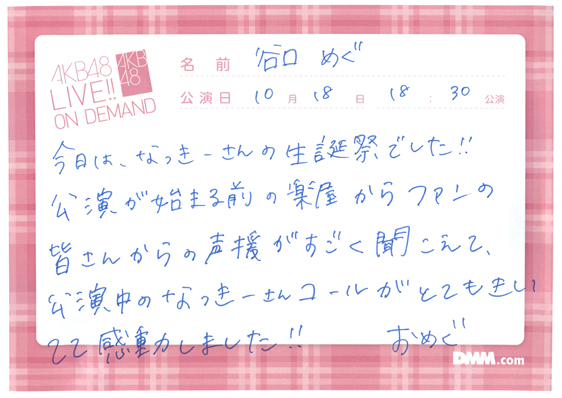 AKB48
LIVE!!
ON DEMAND
AKB
48
名前 谷口 めぐ
公演日 10月18日 18:30公演
今日は、なっきーさんの生誕祭でした!!
公演が始まる前の楽屋からファンの
皆さんからの声援がすごく聞こえて、
公演中のなっきーさんコールがとてもきい
てて感動しました!! おめぐ
DMM.com